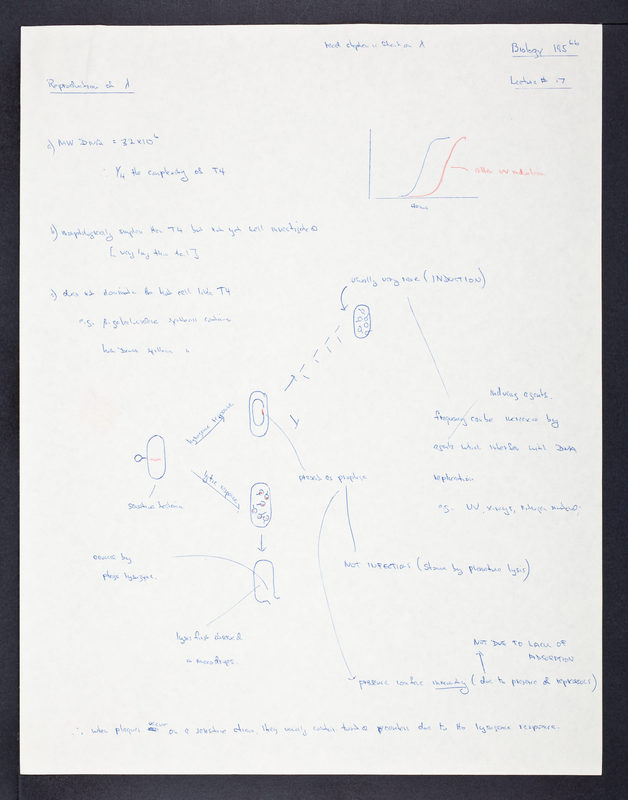 Biology 195
Lecture # 17
Reproduction of λ
a) MW DNA = 32 x 10⁶
∴ 1/4 the complexity of T4
after UV radiation
time
b) morphologically simpler than T4 but not yet well investigated
[ very long thin tail ]
c) does not dominate the host cell like T4
e.g. β-galactosidase synthesis continues
host DNA synthesis "
usually very rare (INDUCTION)
inducing agents
frequency can be increased by
agents which interfere with DNA
replication
e.g. UV, x-rays, nitrogen mustard
lysogenic response
lytic response
sensitive bacteria
present as prophage
caused by
phage lysozyme.
NOT INFECTIOUS (shown by premature lysis)
lysis first observed
in microdrops.
NOT DUE TO LACK OF
ADSORPTION
presence confers immunity (due to presence of repressors)
∴ when plaques occur on a sensitive strain, they usually contain turbid centers due to the lysogenic response.